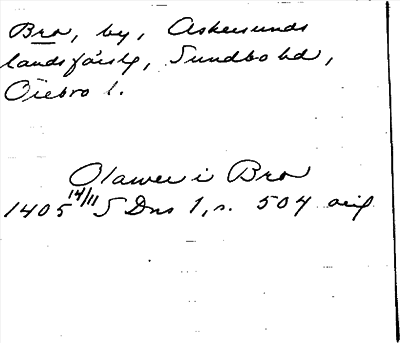 Bro, by, Askersunds
landsförs͜g, Sundbo hd,
Örebro l.
Olawer i Bro
1405 14/11 SDns 1, s. 504 orig